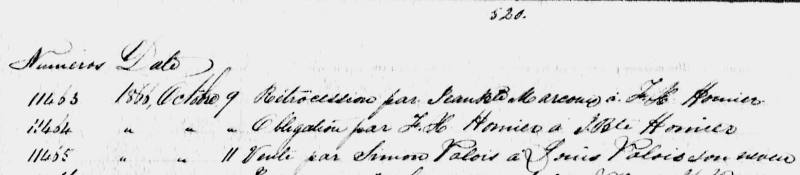 520.
Numéros Date
11463 1866, Octobre 9 Rétrocession par Jean Bte Marcoux à F. H. Homier
11464 " " " Obligation par F. H. Homier à J. Bte Homier
11465 " " 11 Vente par Simon Valois à Louis Valois son neveu